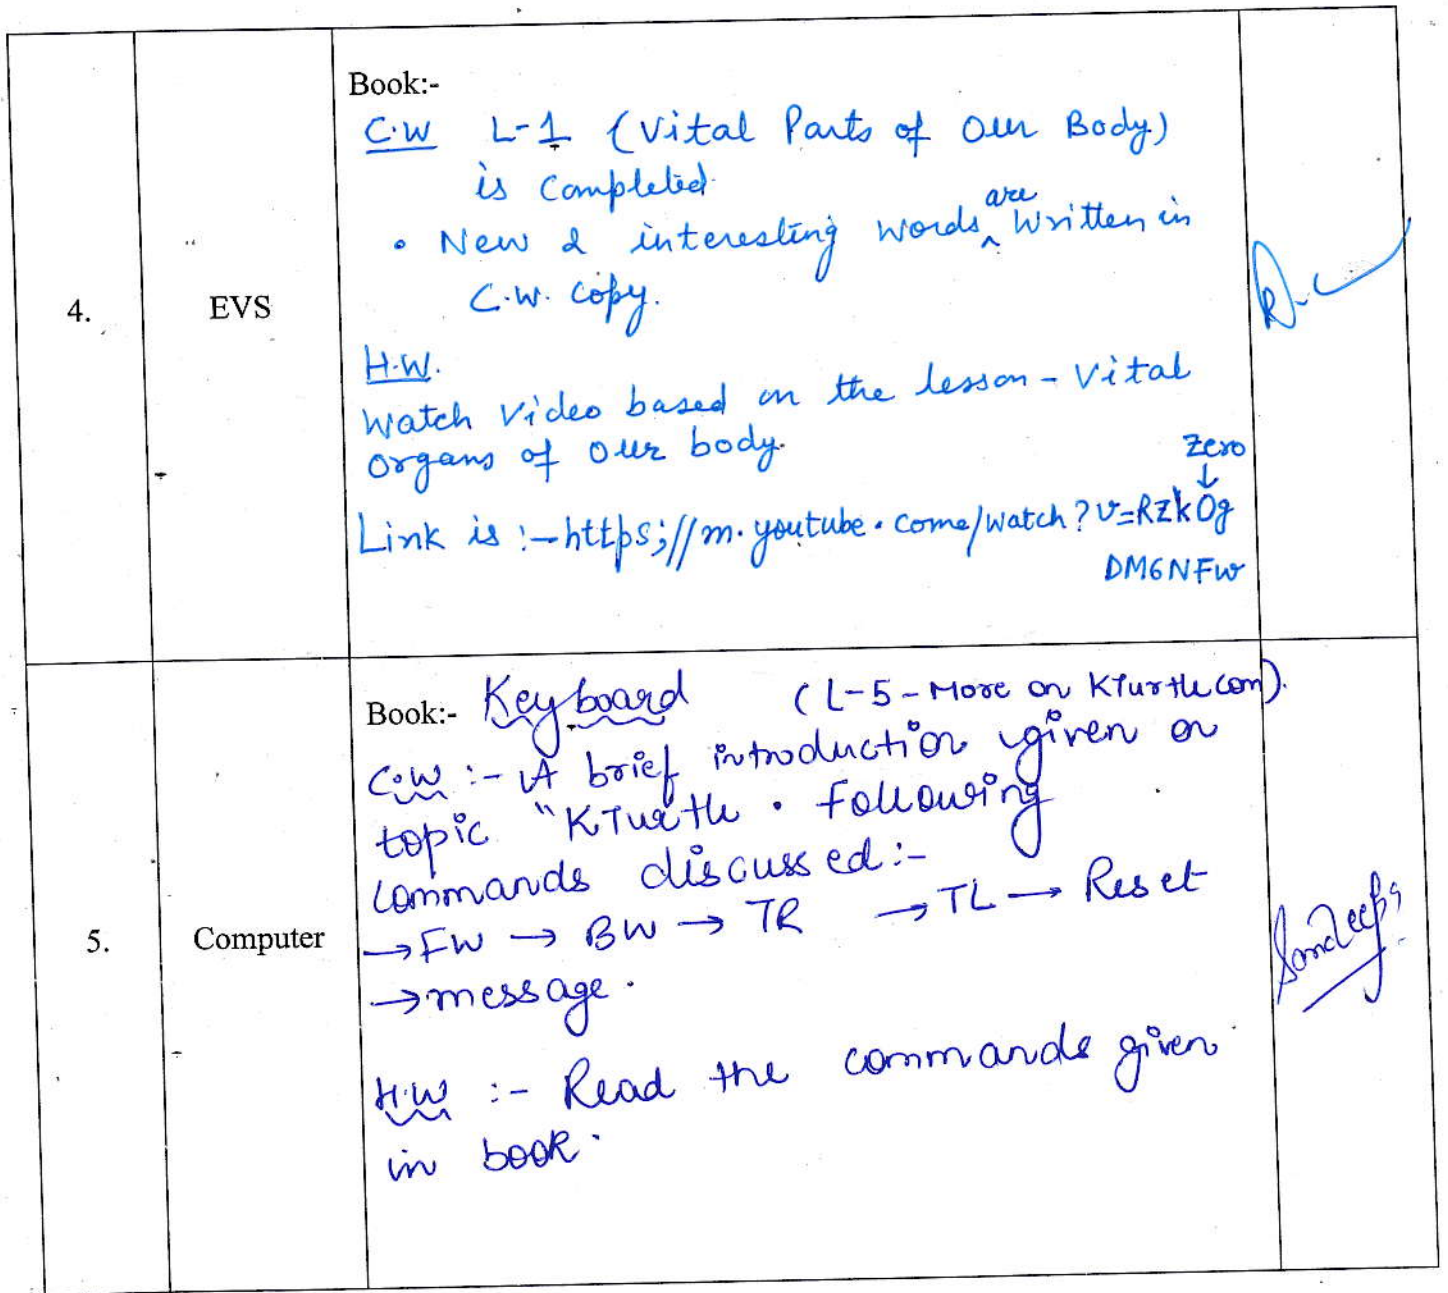 4.
EVS
Book:-
C.W L-1 (Vital Parts of Our Body)
is Completed.
• New & interesting words are written in
C.W. Copy.
H.W.
Watch Video based on the lesson - Vital
Organs of Our body.
Zero
↓
Link is :- https;//m.youtube.come/watch?v=RZk0g
DM6NFw
5.
Computer
Book:- Keyboard (L-5-More on KTurtle Com).
C.W :- A brief introduction given on
topic "KTurtle. Following
Commands discussed:-
→FW → BW → TR → TL → Reset
→message.
H.W :- Read the commands given
in book.